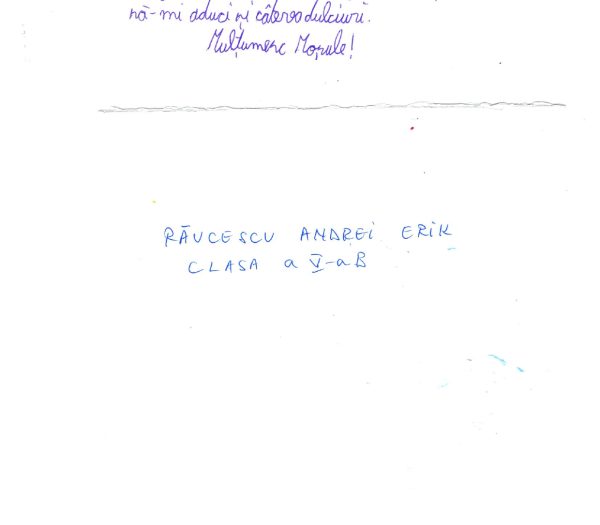 să-mi aduci și câteva dulciuri.
Mulțumesc Moșule!
RĂUCESCU ANDREI ERIK
CLASA a V-a B